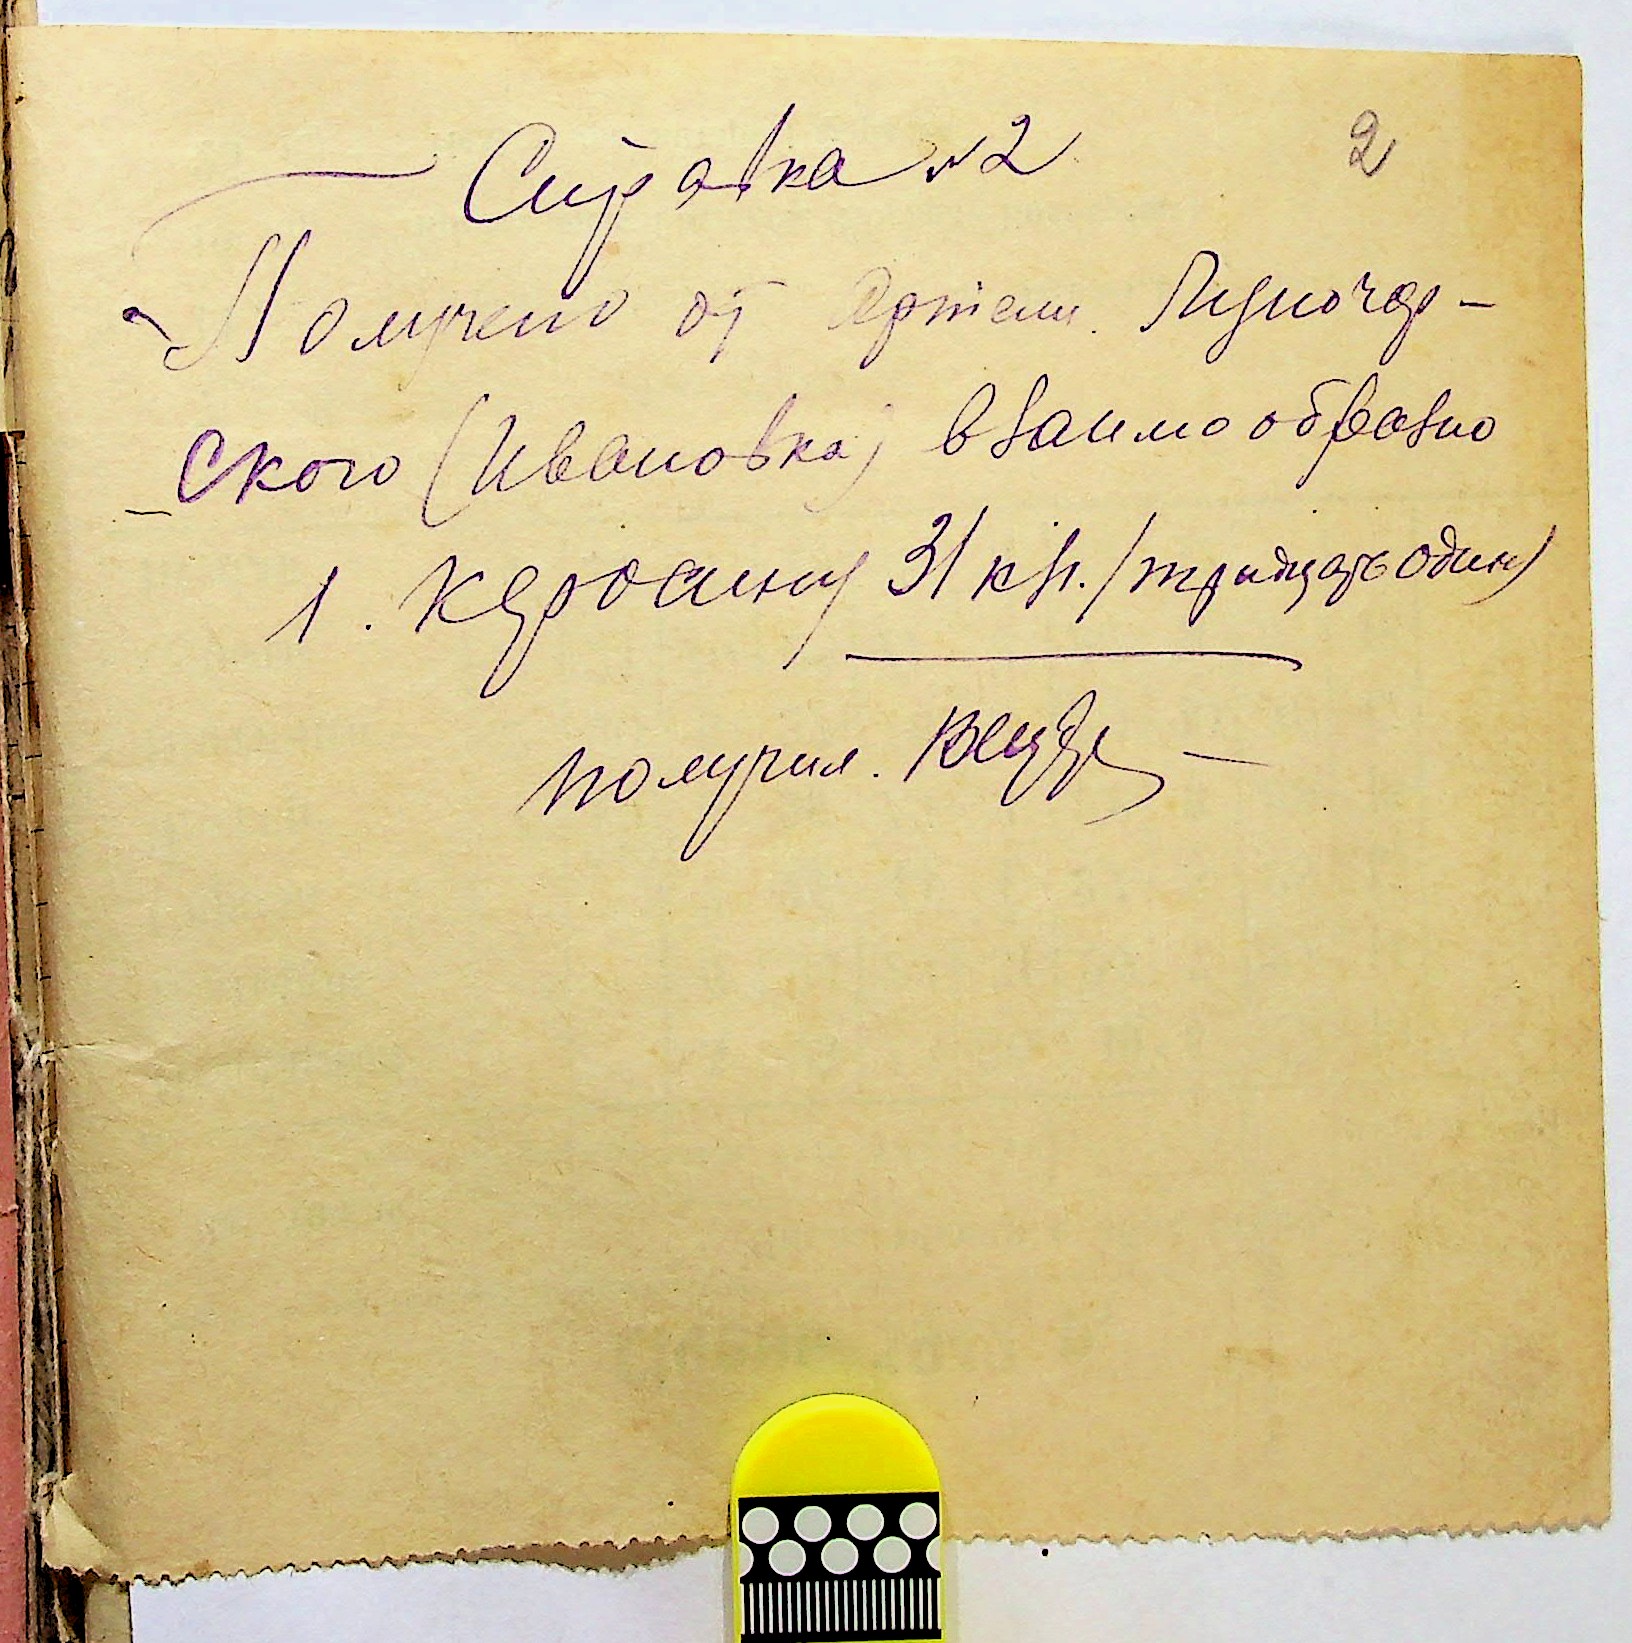 Справка №2
2
Получено от Артели Луночар-
ского (Ивановка) взаимообразно
1. Керосину 31 кг. /тридцать один)
получил.